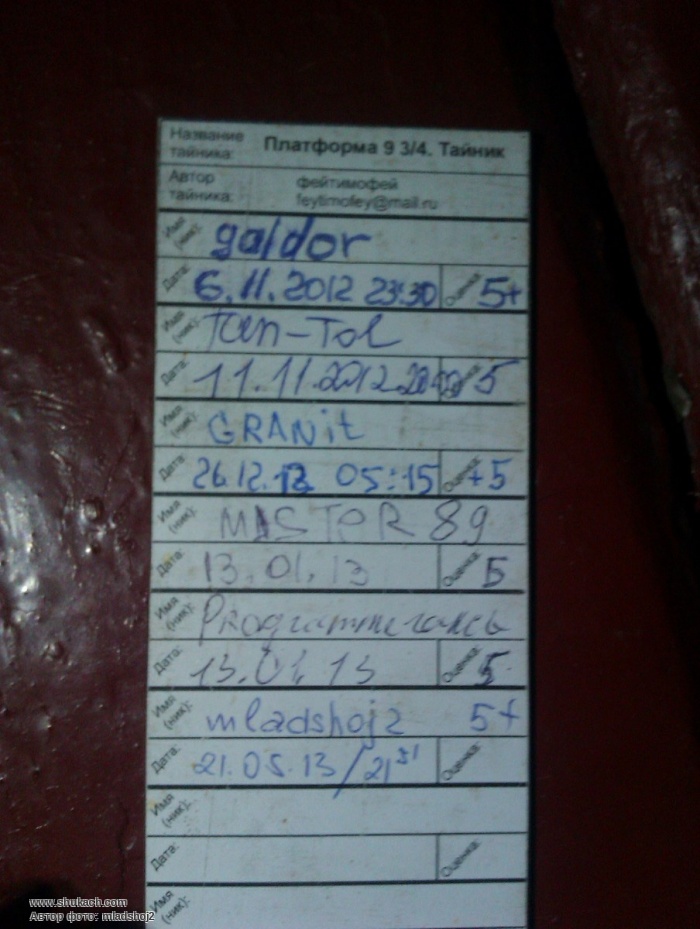 Название тайника: Платформа 9 3/4. Тайник
Автор тайника: фейтимофей
feytimofey@mail.ru
Имя (ник): galdor
Дата: 6.11.2012 23:30 Оценка: 5+
Имя (ник): Tan-Tol
Дата: 11.11.2012 Оценка: 5
Имя (ник): GRANit
Дата: 26.12.12 05:15 Оценка: +5
Имя (ник): MISTER 89
Дата: 13.01.13 Оценка: 5
Имя (ник):
Дата: 13.01.13 Оценка: 5
Имя (ник): mladshoj2 5+
Дата: 21.05.13 / 21 51 Оценка:
Имя (ник):
Дата: Оценка:
Имя (ник):
www.shukach.com
Автор фото: mladshoj2